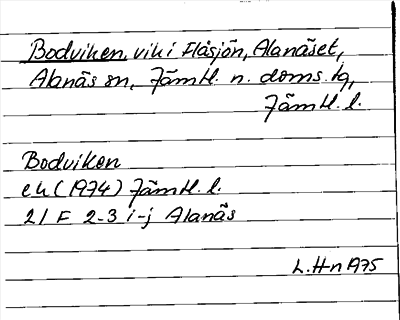 Bodviken, vik i Flåsjön, Alanäset,
Alanäs sn, Jämtl. n. doms. tg,
Jämtl. l.
Bodviken
ek (1974) Jämtl. l.
21 F 2-3 i-j Alanäs
L. H-n 1975